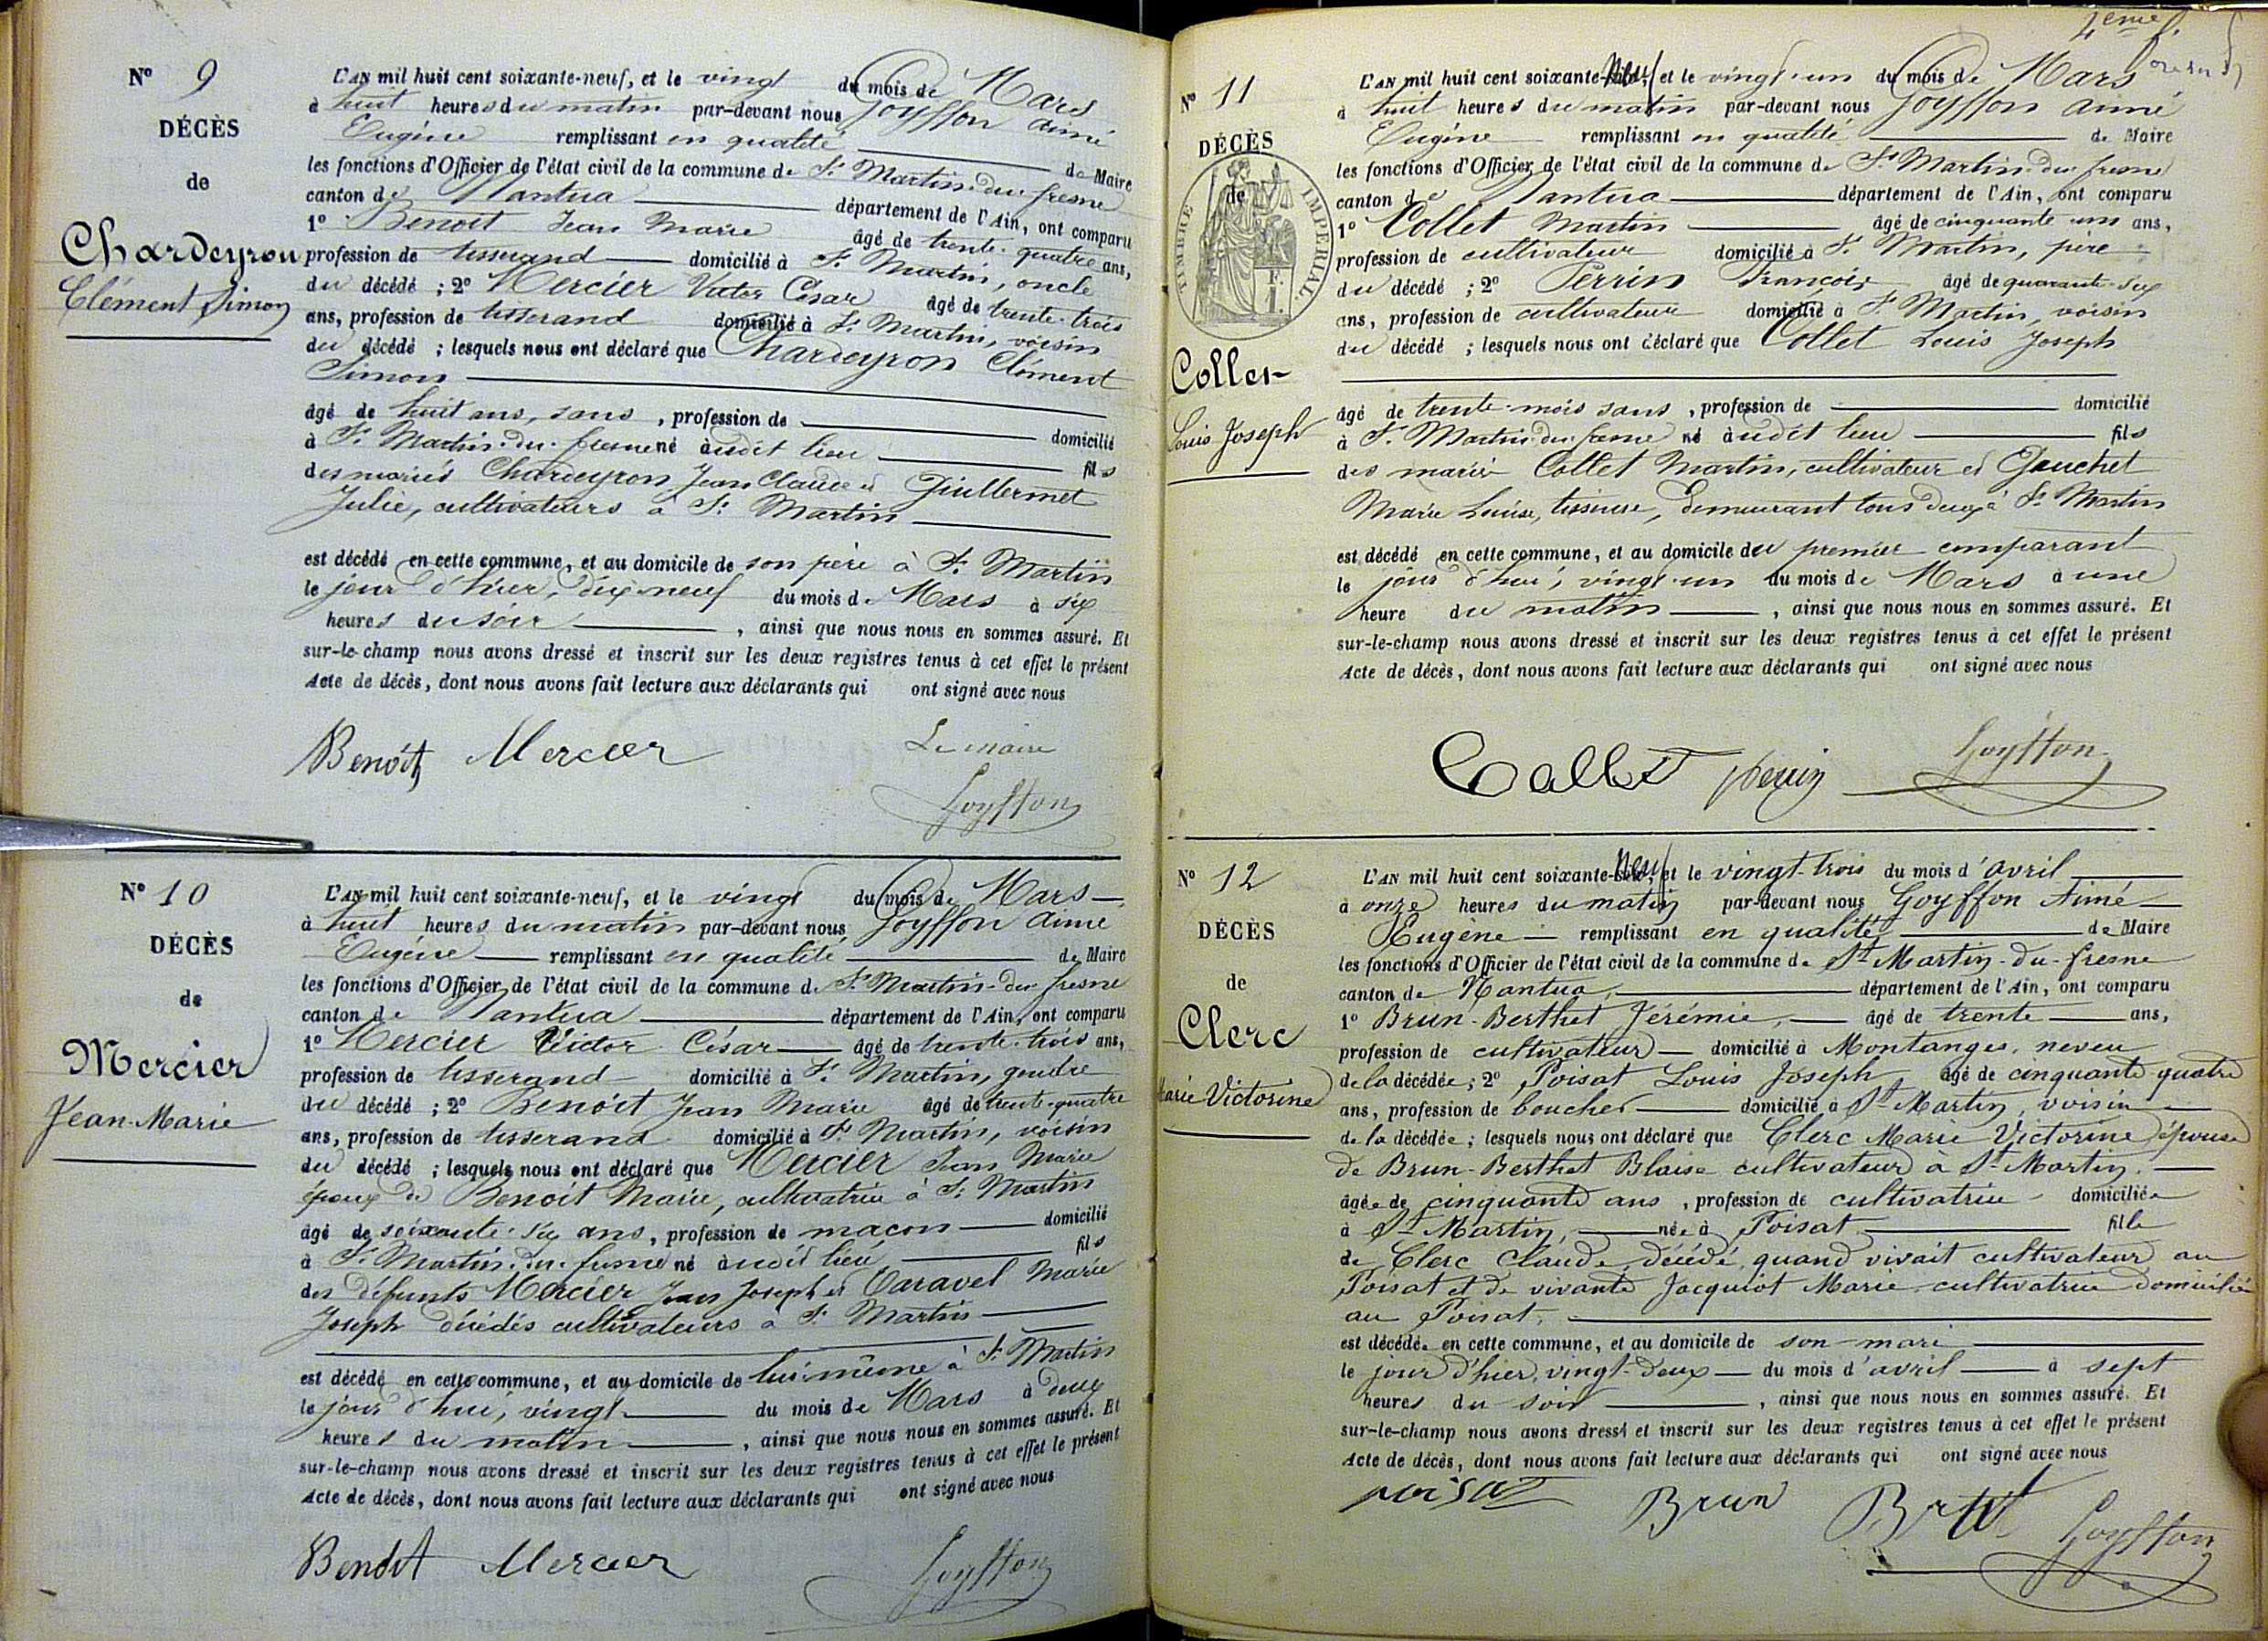 N° 9
DÉCÈS
de
Chardeyron
Clément Simon
L'AN mil huit cent soixante-neuf, et le vingt du mois de Mars
à huit heures du matin par-devant nous Goyffon Aimé
Eugène remplissant en qualité de Maire
les fonctions d'Officier de l'état civil de la commune de St Martin-du-fresne
canton de Nantua département de l'Ain, ont comparu
1° Benoit Jean Marie âgé de trente-quatre ans,
profession de tisserand domicilié à St Martin, oncle
du décédé ; 2° Mercier Victor César âgé de trente-trois
ans, profession de tisserand domicilié à St Martin, voisin
du décédé ; lesquels nous ont déclaré que Chardeyron Clément
Simon
âgé de huit ans, sans , profession de domicilié
à St Martin-du-fresne né audit lieu fils
des mariés Chardeyron Jean Claude et Guillermet
Julie, cultivateurs à St Martin
est décédé en cette commune, et au domicile de son père à St Martin
le jour d'hier, dix-neuf du mois de Mars à six
heures du soir , ainsi que nous nous en sommes assuré. Et
sur-le-champ nous avons dressé et inscrit sur les deux registres tenus à cet effet le présent
Acte de décès, dont nous avons fait lecture aux déclarants qui ont signé avec nous
Benoit Mercier Le maire
Goyffon
N° 10
DÉCÈS
de
Mercier
Jean-Marie
L'AN mil huit cent soixante-neuf, et le vingt du mois de Mars
à huit heures du matin par-devant nous Goyffon Aimé
Eugène remplissant en qualité de Maire
les fonctions d'Officier de l'état civil de la commune de St Martin-du-fresne
canton de Nantua département de l'Ain, ont comparu
1° Mercier Victor César âgé de trente-trois ans,
profession de tisserand domicilié à St Martin, gendre
du décédé ; 2° Benoit Jean Marie âgé de trente-quatre
ans, profession de tisserand domicilié à St Martin, voisin
du décédé ; lesquels nous ont déclaré que Mercier Jean Marie
époux de Benoit Marie, cultivatrice à St Martin
âgé de soixante-six ans, profession de maçon domicilié
à St Martin-du-fresne né audit lieu fils
des défunts Mercier Jean Joseph et Caravel Marie
Joseph décédés cultivateurs à St Martin
est décédé en cette commune, et au domicile de lui-même à St Martin
le jour d'hui, vingt du mois de Mars à deux
heures du matin , ainsi que nous nous en sommes assuré. Et
sur-le-champ nous avons dressé et inscrit sur les deux registres tenus à cet effet le présent
Acte de décès, dont nous avons fait lecture aux déclarants qui ont signé avec nous
Benoit Mercier Goyffon
4eme f.
N° 11
DÉCÈS
de
TIMBRE IMPÉRIAL
1 F.
Collet
Louis Joseph
L'AN mil huit cent soixante-neuf, et le vingt-un du mois de Mars
à huit heures du matin par-devant nous Goyffon Aimé
Eugène remplissant en qualité de Maire
les fonctions d'Officier de l'état civil de la commune de St Martin-du-fresne
canton de Nantua département de l'Ain, ont comparu
1° Collet Martin âgé de cinquante un ans,
profession de cultivateur domicilié à St Martin, père
du décédé ; 2° Perrin François âgé de quarante-six
ans, profession de cultivateur domicilié à St Martin, voisin
du décédé ; lesquels nous ont déclaré que Collet Louis Joseph
âgé de trente-mois sans , profession de domicilié
à St Martin-du-fresne né audit lieu fils
des mariés Collet Martin, cultivateur et Gauchet
Marie Louise, tisseuse, demeurant tous deux à St Martin
est décédé en cette commune, et au domicile du premier comparant
le jour d'hui, vingt-un du mois de Mars à une
heure du matin , ainsi que nous nous en sommes assuré. Et
sur-le-champ nous avons dressé et inscrit sur les deux registres tenus à cet effet le présent
Acte de décès, dont nous avons fait lecture aux déclarants qui ont signé avec nous
Collet Perrin Goyffon
N° 12
DÉCÈS
de
Clerc
Marie Victorine
L'AN mil huit cent soixante-neuf, et le vingt-trois du mois d'avril
à onze heures du matin par-devant nous Goyffon Aimé
Eugène remplissant en qualité de Maire
les fonctions d'Officier de l'état civil de la commune de St Martin-du-fresne
canton de Nantua, département de l'Ain, ont comparu
1° Brun-Berthet Jérémie, âgé de trente ans,
profession de cultivateur domicilié à Montanges, neveu
de la décédée ; 2° Poisat Louis Joseph âgé de cinquante-quatre
ans, profession de boucher domicilié à St Martin, voisin
de la décédée ; lesquels nous ont déclaré que Clerc Marie Victorine épouse
de Brun-Berthet Blaise cultivateur à St Martin.
âgée de cinquante ans , profession de cultivatrice domiciliée
à St Martin, née à Poisat fille
de Clerc Claude, décédé, quand vivait cultivateur au
Poisat et de vivante Jacquiot Marie cultivatrice domiciliée
au Poisat,
est décédée en cette commune, et au domicile de son mari
le jour d'hier, vingt-deux du mois d'avril à sept
heures du soir , ainsi que nous nous en sommes assuré. Et
sur-le-champ nous avons dressé et inscrit sur les deux registres tenus à cet effet le présent
Acte de décès, dont nous avons fait lecture aux déclarants qui ont signé avec nous
poisat Brun Goyffon